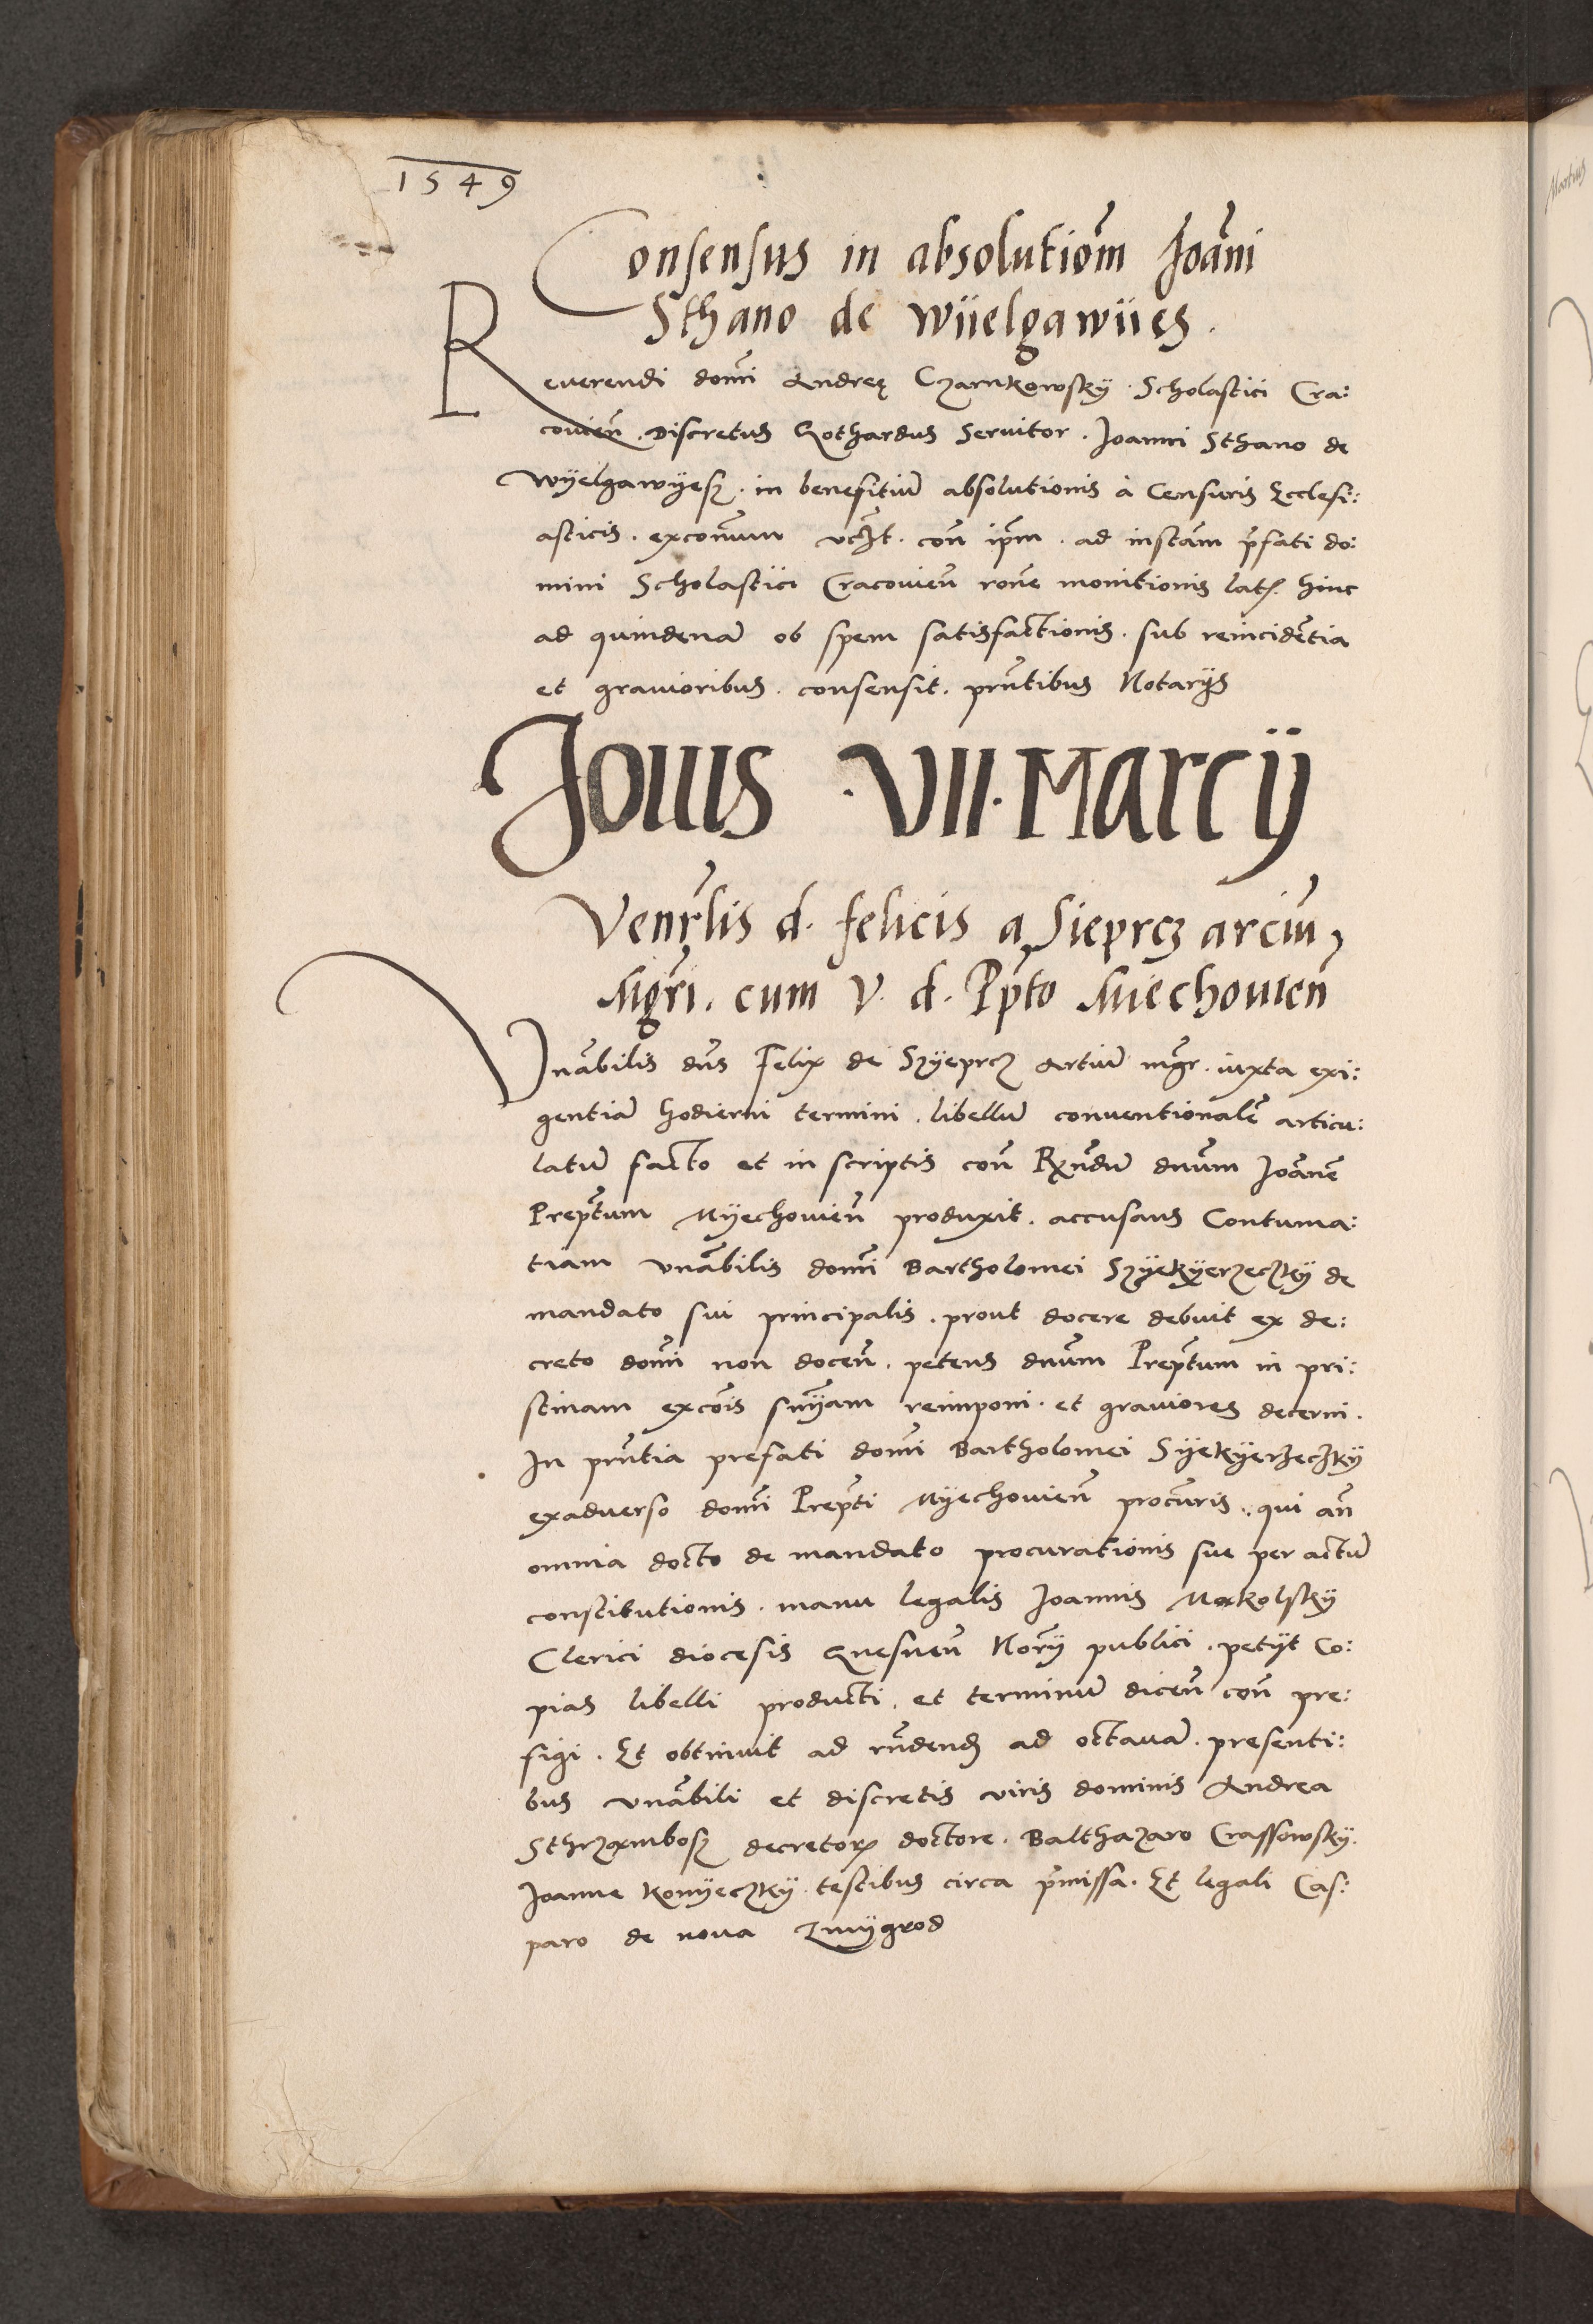 1549
Consensus in absolutiom̃ Ioãni
Sthano de Wÿelgawÿes.
Reuerendi domĩ Andreę Czarnkowskÿ. Scholastici Cra:
couieñ. Discretus Gothardus Seruitor. Joanni Sthano de
Wÿelgawÿesz. in benefitiũ absolutionis à Censuris Ecclesi:
asticis. coñ ip̃m. ad instãm p̃fati do:
mini Scholastici Cracouieñ rõne monitionis lat. hinc
ad quindenã ob spem satisfactionis. sub reincidẽtia
et grauioribus. consensit. prñtibus Notarijs
Jouis .VII. Marcÿ
Venrl̃is d. felicis a Sieprcz arciũ
Mgrĩ. cum V. d. Pp̃to Miechouieñ
Vnãbilis dñs Felix de Szÿeprcz Artiũ mgr̃. iuxta exi:
gentiã hodierni termini. libellũ conuentionalẽ articu:
latũ facto et in scriptis coñ Rñdũ dnũm Joãnẽ
Prep̃tum Mÿechouieñ produxit. accusans Contuma:
tiam vnãbilis domĩ Bartholomei Szÿekÿerzeczkÿ de
mandato sui principalis. prout docere debuit ex de:
creto domĩ non doceñ. petens dnũm Prep̃tum in pri:
stinam excõis snÿ̃am reimponi. et grauiores decerni.
In prñtia prefati domĩ Bartholomei Sÿekÿerzeczkÿ
exaduerso domĩ Prep̃ti Mÿechouieñ procũris. qui añ
omnia docto de mandato procurationis sue per actũ
constitutionis. manu legalis Joannis Mokolskÿ
Clerici diocesis Gnesneñ Norĩj publici. petÿt Co:
pias libelli producti. et terminũ diceñ coñ pre:
figi. Et obtinuit ad rñdend ad octauã. presenti:
bus vnãbili et discretis viris dominis Andrea
Sthrzambosz decretor doctore. Balthazaro Crassowskÿ.
Joanne Konÿeczkÿ. testibus circa p̃missa. Et legali Cas:
paro de noua Zmÿgrod